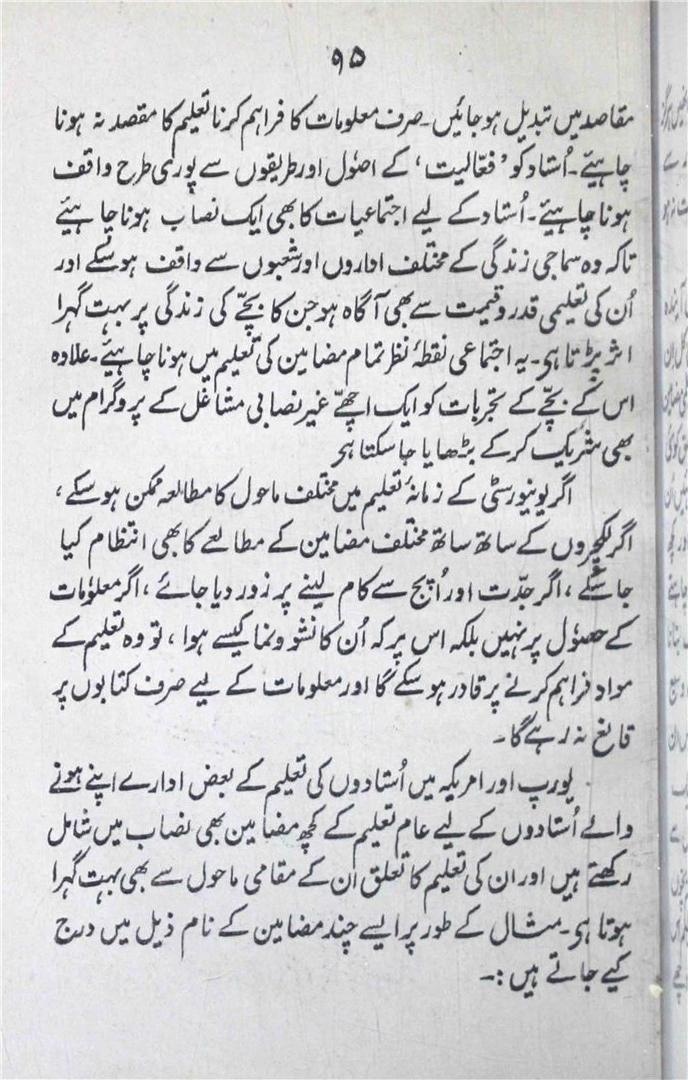 ۹۵
مقاصد میں تبدیل ہو جائیں۔ صرف معلومات کا فراہم کرنا تعلیم کا مقصد نہ ہونا
چاہیئے۔ اُستاد کو ’فعّالیت‘ کے اصٗول اور طریقوں سے پوری طرح واقف
ہونا چاہیئے۔ اُستاد کے لیے اجتماعیات کا بھی ایک نصاب ہونا چاہیئے
تاکہ وہ سماجی زندگی کے مختلف اداروں اور شعبوں سے واقف ہو سکے اور
اُن کی تعلیمی قدر و قیمت سے بھی آگاہ ہو جن کا بچّے کی زندگی پر بہت گہرا
اثر پڑتا ہی۔ یہ اجتماعی نقطۂ نظر تمام مضامین کی تعلیم میں ہونا چاہیئے۔ علاوہ
اس کے بچّے کے تجربات کو ایک اچھّے غیر نصابی مشاغل کے پروگرام میں
بھی شریک کرکے بڑھایا جا سکتا ہی
اگر یونیورسٹی کے زمانۂ تعلیم میں مختلف ماحول کا مطالعہ ممکن ہو سکے ،
اگر لکچروں کے ساتھ ساتھ مختلف مضامین کے مطالعے کا بھی انتظام کیا
جا سکے ، اگر جدّت اور اُپج سے کام لینے پر زور دیا جائے ، اگر معلوٗمات
کے حصوٗل پر نہیں بلکہ اس پر کہ اُن کا نشو و نما کیسے ہوا ، تو وہ تعلیم کے
مواد فراہم کرنے پر قادر ہو سکے گا اور معلومات کے لیے صرف کتابوں پر
قانع نہ رہے گا۔
یورپ اور امریکہ میں اُستادوں کی تعلیم کے بعض ادارے اپنے ہونے
والے اُستادوں کے لیے عام تعلیم کے کچھ مضامین بھی نصاب میں شامل
رکھتے ہیں اور ان کی تعلیم کا تعلق ان کے مقامی ماحول سے بھی بہت گہرا
ہوتا ہی۔ مثال کے طور پر ایسے چند مضامین کے نام ذیل میں درج
کیے جاتے ہیں :۔